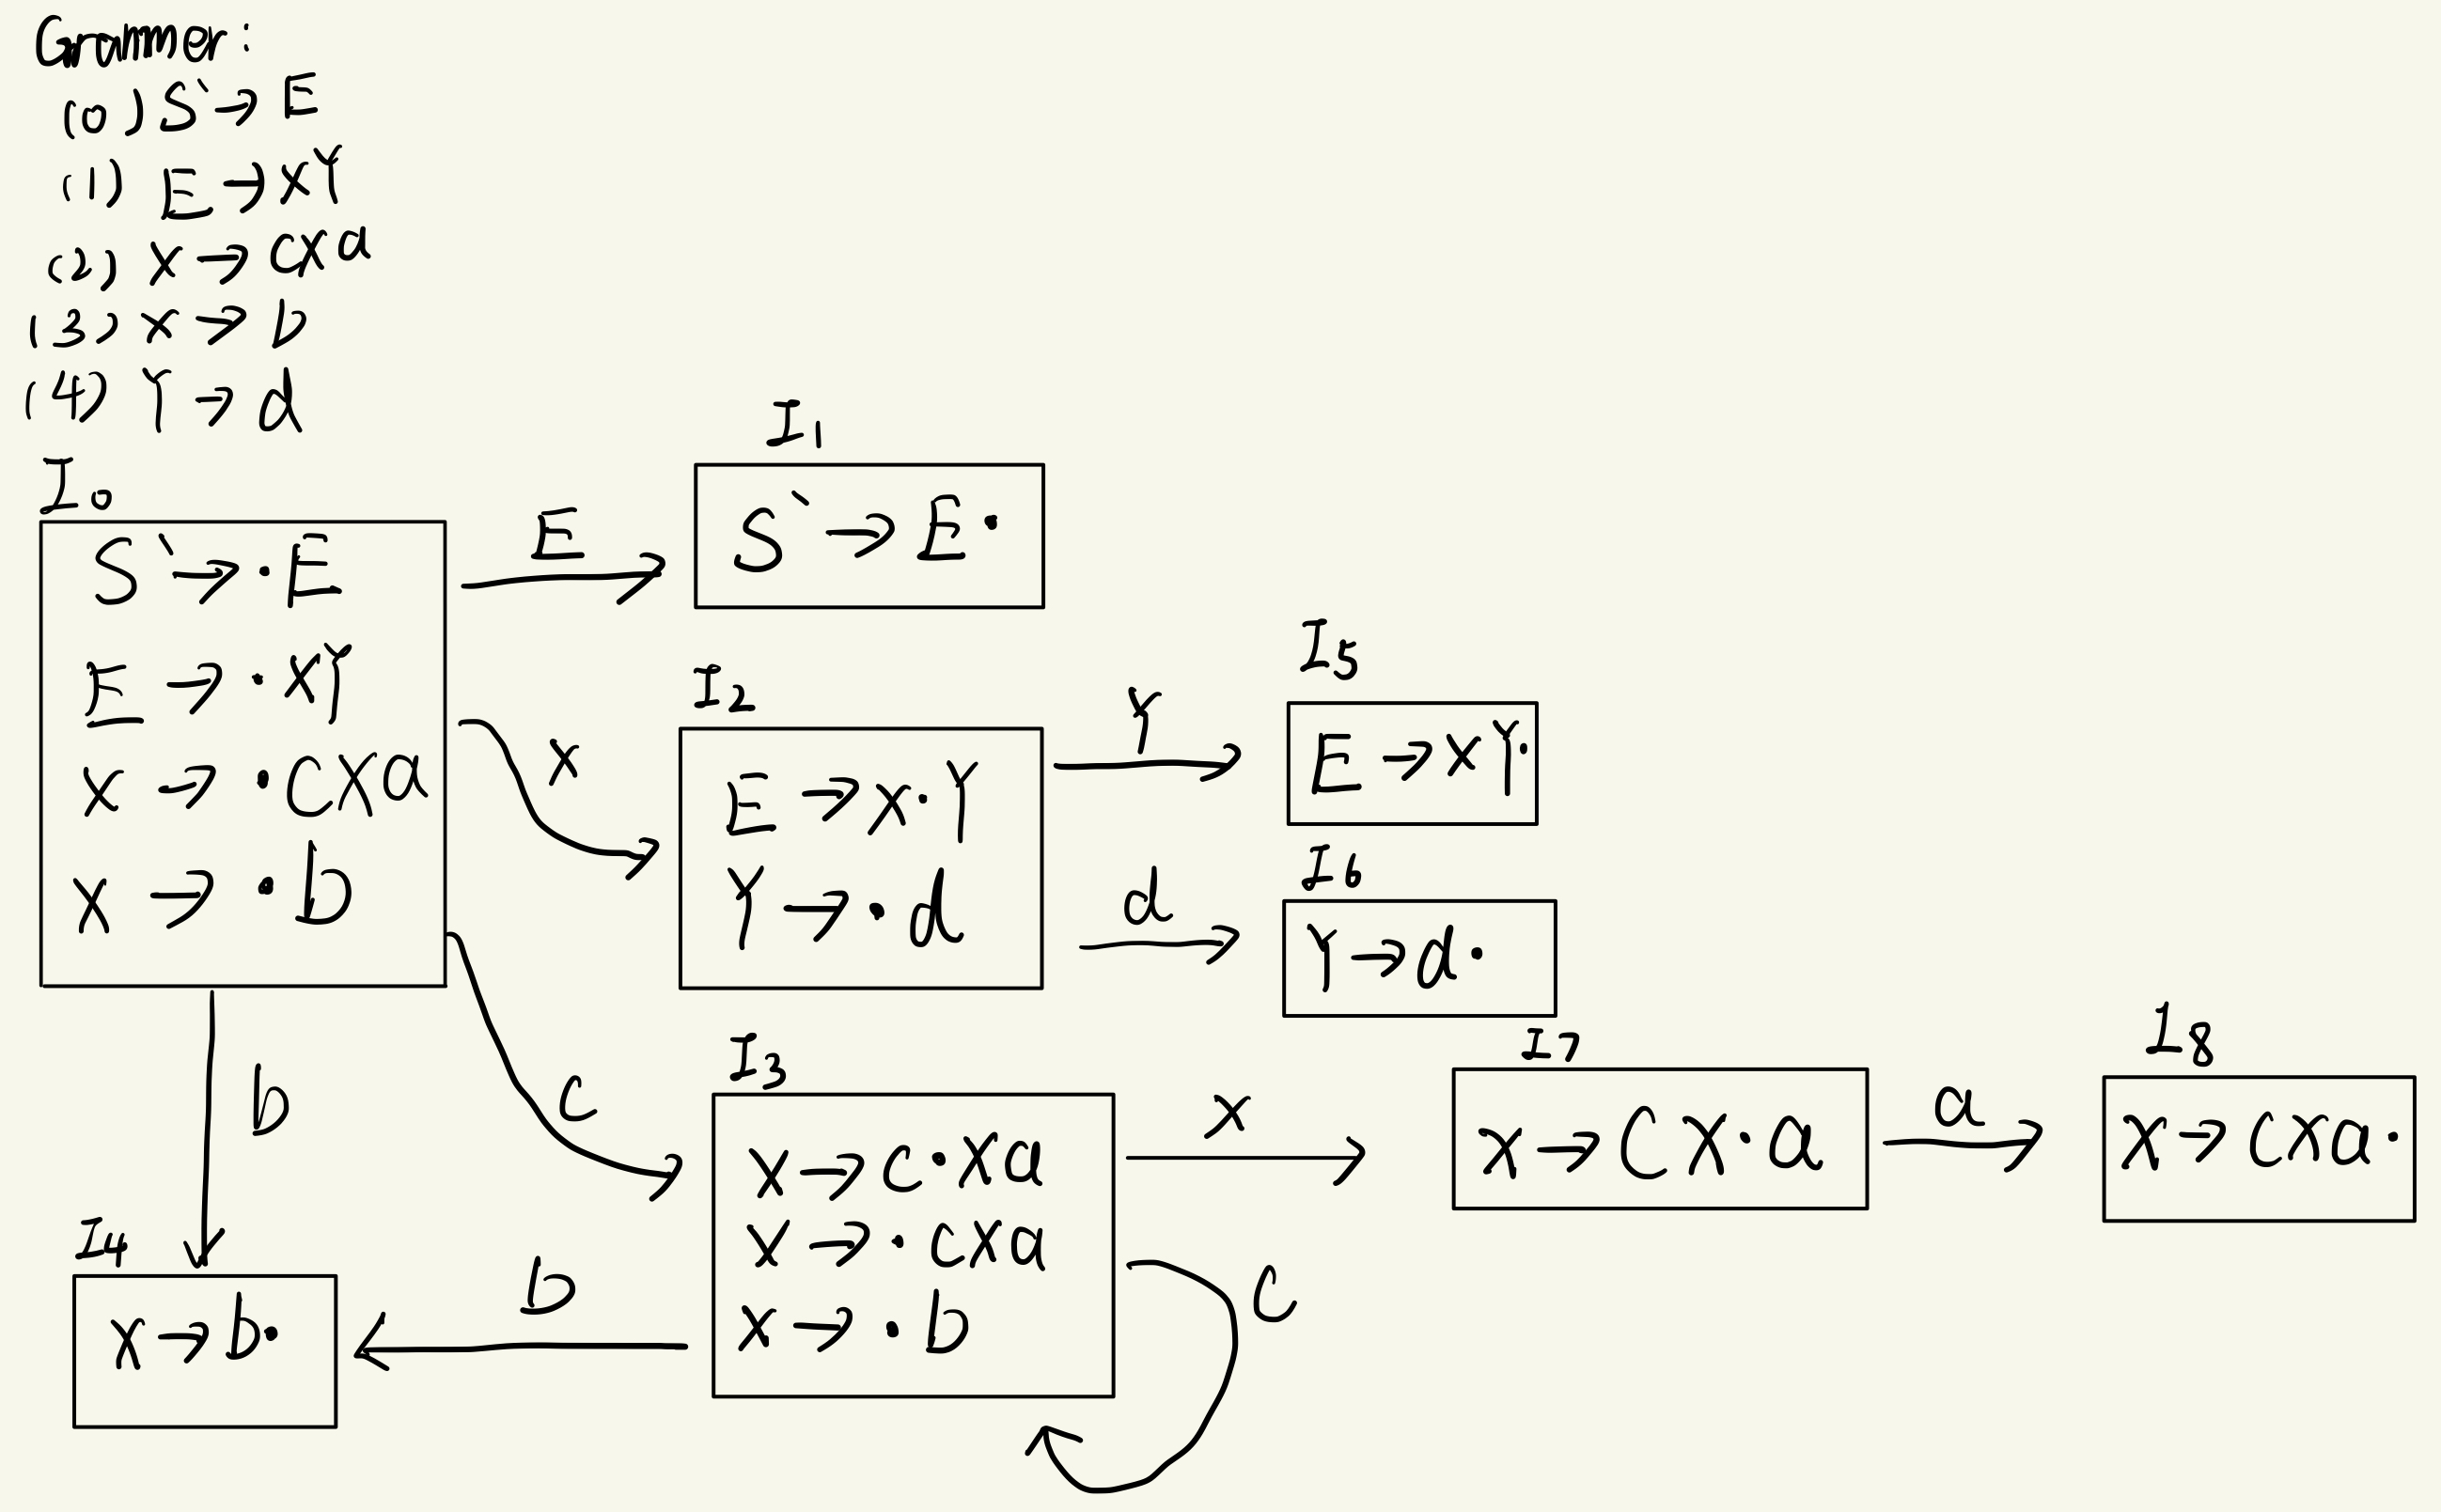 Grammar:
(0) S` → E
(1) E → XY
(2) X → cXa
(3) X → b
(4) Y → d
I0
S` → ·E
E → ·XY
X → ·cXa
X → ·b
E
I1
S` → E·
X
I2
E → X·Y
Y → ·d
Y
I5
E → XY·
d
I6
Y → d·
c
I3
X → c·Xa
X → ·cXa
X → ·b
X
I7
X → cX·a
a
I8
X → cXa·
c
b
b
I4
X → b·